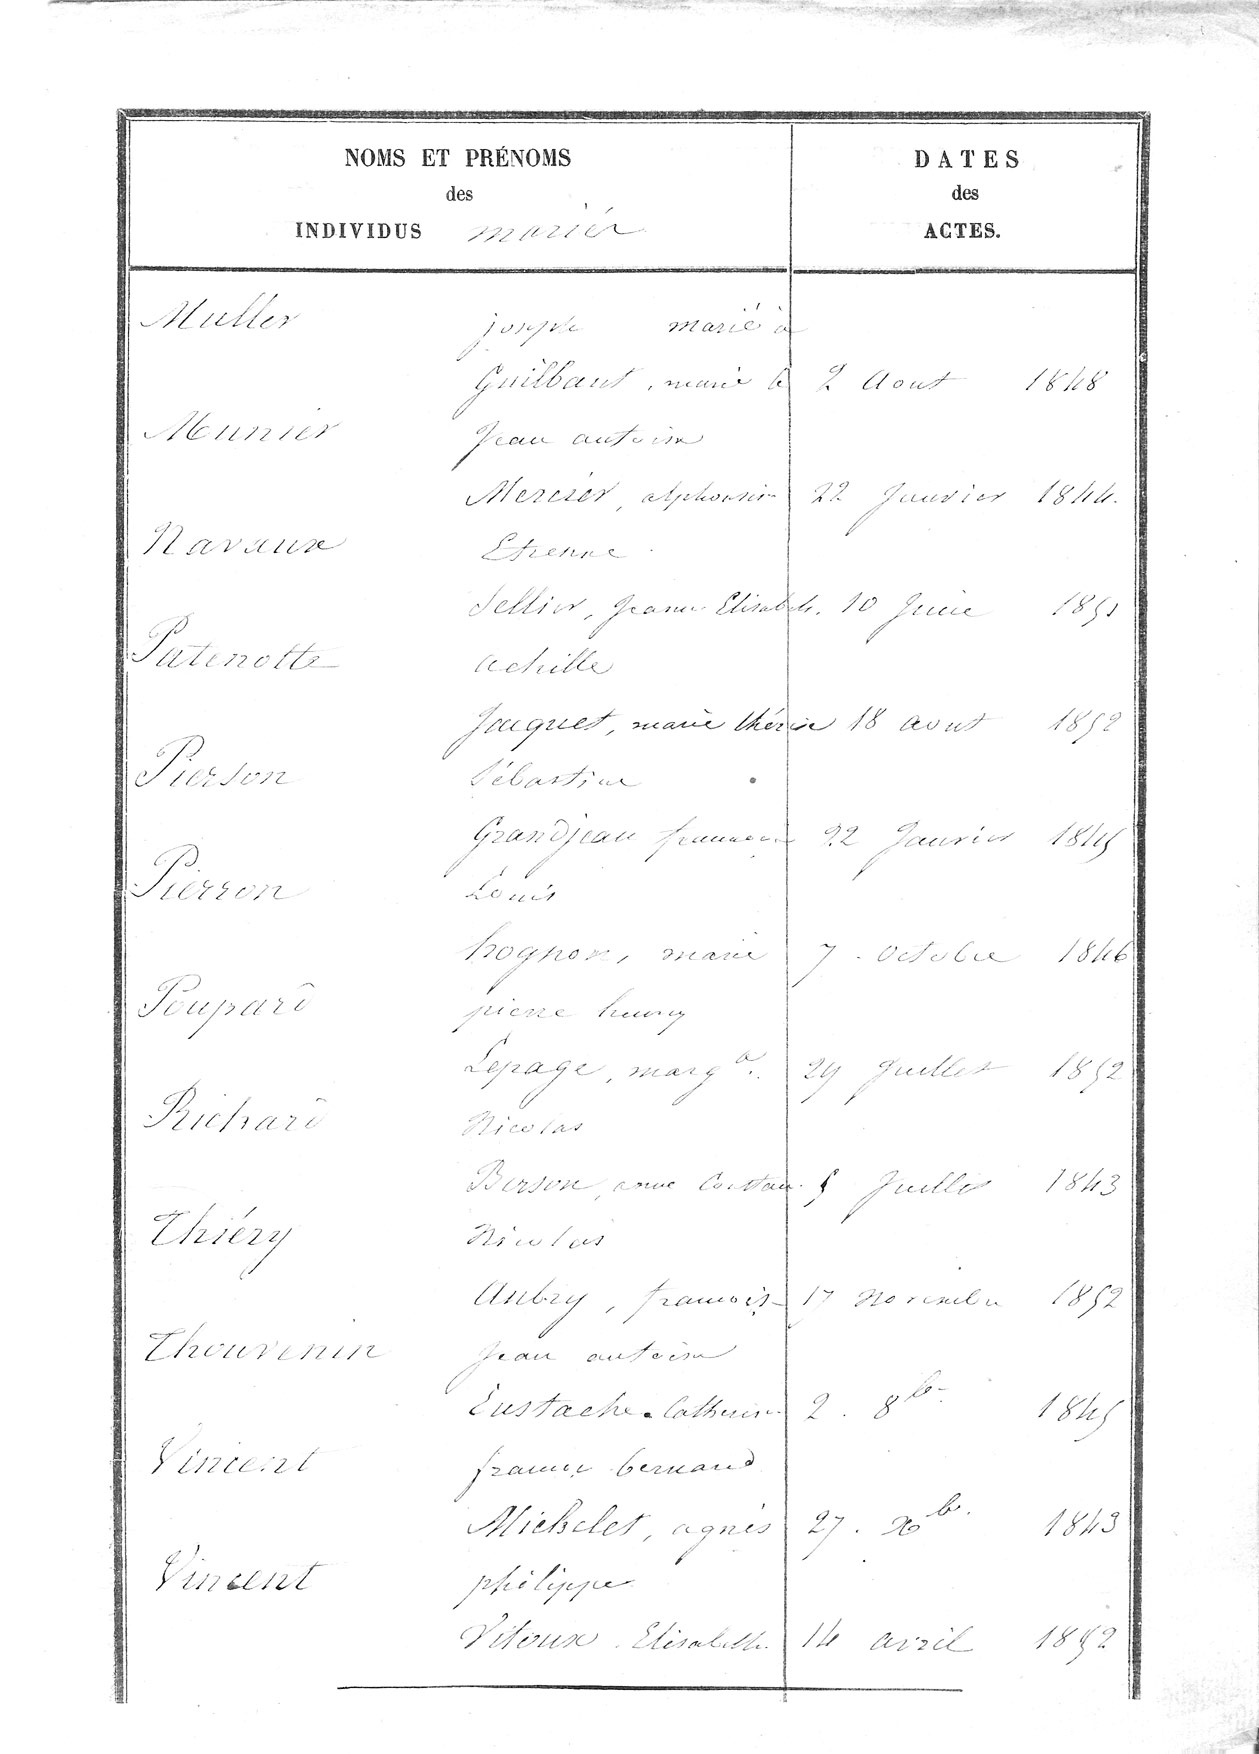 NOMS ET PRÉNOMS
des
INDIVIDUS mariés
DATES
des
ACTES.
Muller joseph marié à
Guilbaut, marie 2 Aout 1848
Munier Jean antoine
Mercier, alphonsine 22 Janvier 1844.
Navaux Etienne
Sellier, Jeanne Elisabeth. 10 Juin 1851
Patenotte achille
Jacquet, marie thérèse 18 aout 1852
Pierson Sébastien
Grandjean 22 Janvier 1845
Pierron Louis
hognon, marie 7. Octobre 1846
Poupard pierre henry
Lepage, marg te. 29 Juillet 1852
Richard Nicolas
Berson, anne 5 Juillet 1843
Thiéry Nicolas
Aubry, francoise 17 Novembre 1852
Thouvenin Jean antoine
Eustache. Catherine 2. 8b. 1845
Vincent bernard
Michelet, agnès 27. Xb. 1843
Vincent philippe
Vitoux. Elisabeth. 14 avril 1852